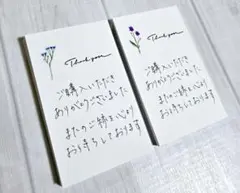 Thank you
ご購入いただき
ありがとうございました
またのご縁を心より
お待ちしております
Thank you
ご購入いただき
ありがとうございました
またのご縁を心より
お待ちしております